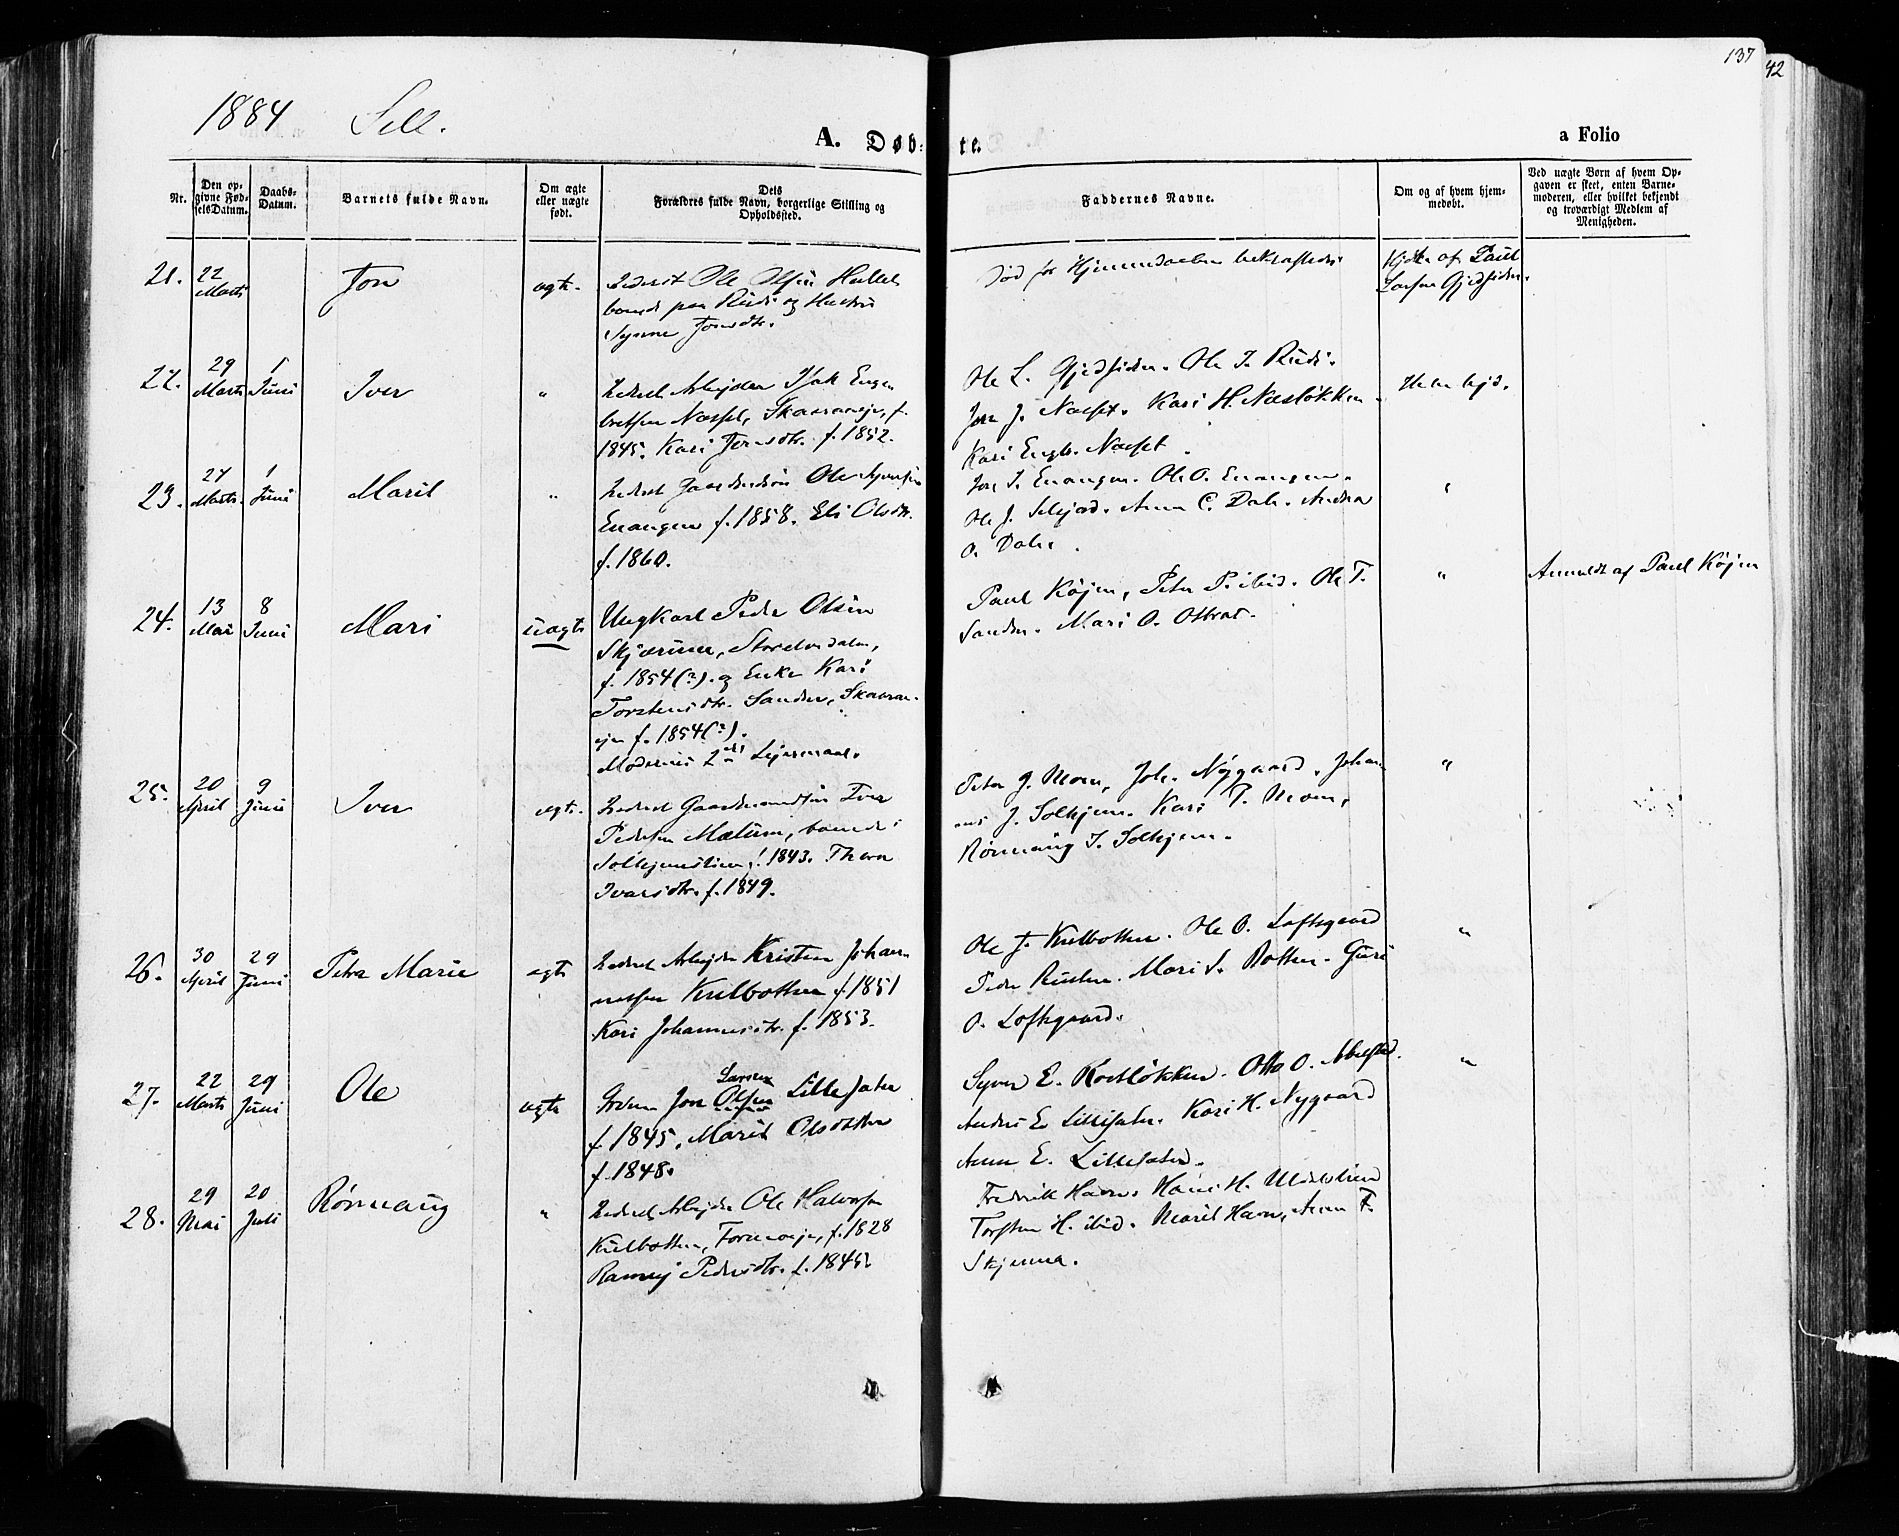 137
42
1884 Sell.
A. Døb-
te.
a Folio
Nr.
Den op-
givne Fød-
selsDatum.
Daabs-
Datum.
Barnets fulde Navn.
Om ægte
eller uægte
født.
Dets
Forældres fulde Navn, borgerlige Stilling og
Opholdssted.
Faddernes Navne.
Om og af hvem hjem-
medøbt.
Ved uægte Børn af hvem Op-
gaven er skeet, enten Barne-
moderen, eller hvilket bekjendt
og troværdigt Medlem af
Menigheden.
21. 22 Marts Jon ægte. Ole Olsen
paa Rudi og Hustru
Synne Jonsdtr.
Død før Hjemmedaaben bekræftedes
Hjdt. af Paul
Larsen Gjedsiden.
22. 29 Marts 1 Juni Iver "
Arbejder Isak Enge-
bretsen Næsset, f.
1845. Kari Jonsdtr. f. 1852.
Ole L. Gjedsiden. Ole I. Rudi.
Jon J. Næset. Kari H. Næsløkken.
Kari Engb. Næset
Hjem hjd.
23. 27 Marts 1 Juni Marit "
Ole
Enangen f. 1858. Eli Olsdtr.
f. 1860.
Jon I. Enangen. Ole O. Enangen.
Ole J. Seljord. Anne C. Dale.
O. Dale.
"
24. 13 Mai 8 Juni Mari uægte
Ungkarl Peder Olsen
Skjærv
f. 1854(?). og Enke Kari
Torstensdtr. Sanden, Skaarva-
ejen f. 1854(?).
Moderens 2det Lejermaal.
Paul Køjen, Peter P. ibid. Ole T.
Sanden. Mari O. Ottrat.
"
Anmeldt af Paul Køjen
25. 20 April 9 Juni Iver ægte.
Gaardmandssøn Iver
Pedersen Mælum, boende i
Solhjemslien f. 1843. Thora
Ivarsdtr. f. 1849.
Peter J. Moen, Joh. Nygaard. Johan-
nes J. Solhjem. Kari P. Moen,
Rønnaug I. Solhjem.
"
26. 30 April 29 Juni Petra Marie ægte
Arbejder Kristen Johan-
nessen Kulbotten f. 1851
Kari Johannesdtr. f. 1853.
Ole J. Kulbotten. Ole O. Loftsgaard
Peder Rusten. Mari S. Botten. Guri
O. Loftsgaard.
"
27. 22 Marts 29 Juni Ole ægte
Larsen
Jon Olsen Lillesæter
f. 1845, Marit Olsdatter
f. 1848.
Syver E. Romsløkken. Otto O.
Anders E. Lillesæter. Kari H. Nygaard
Anne E. Lillesæter.
"
28. 29 Mai 20 Juli Rønnaug "
Arbejder Ole Halvorsen
Kulbotten, f. 1828
Pedersdtr. f. 1845.
Fredrik Havn. Hans H.
Torsten H. ibid. Marit Havn, Anne F.
Skjenna.